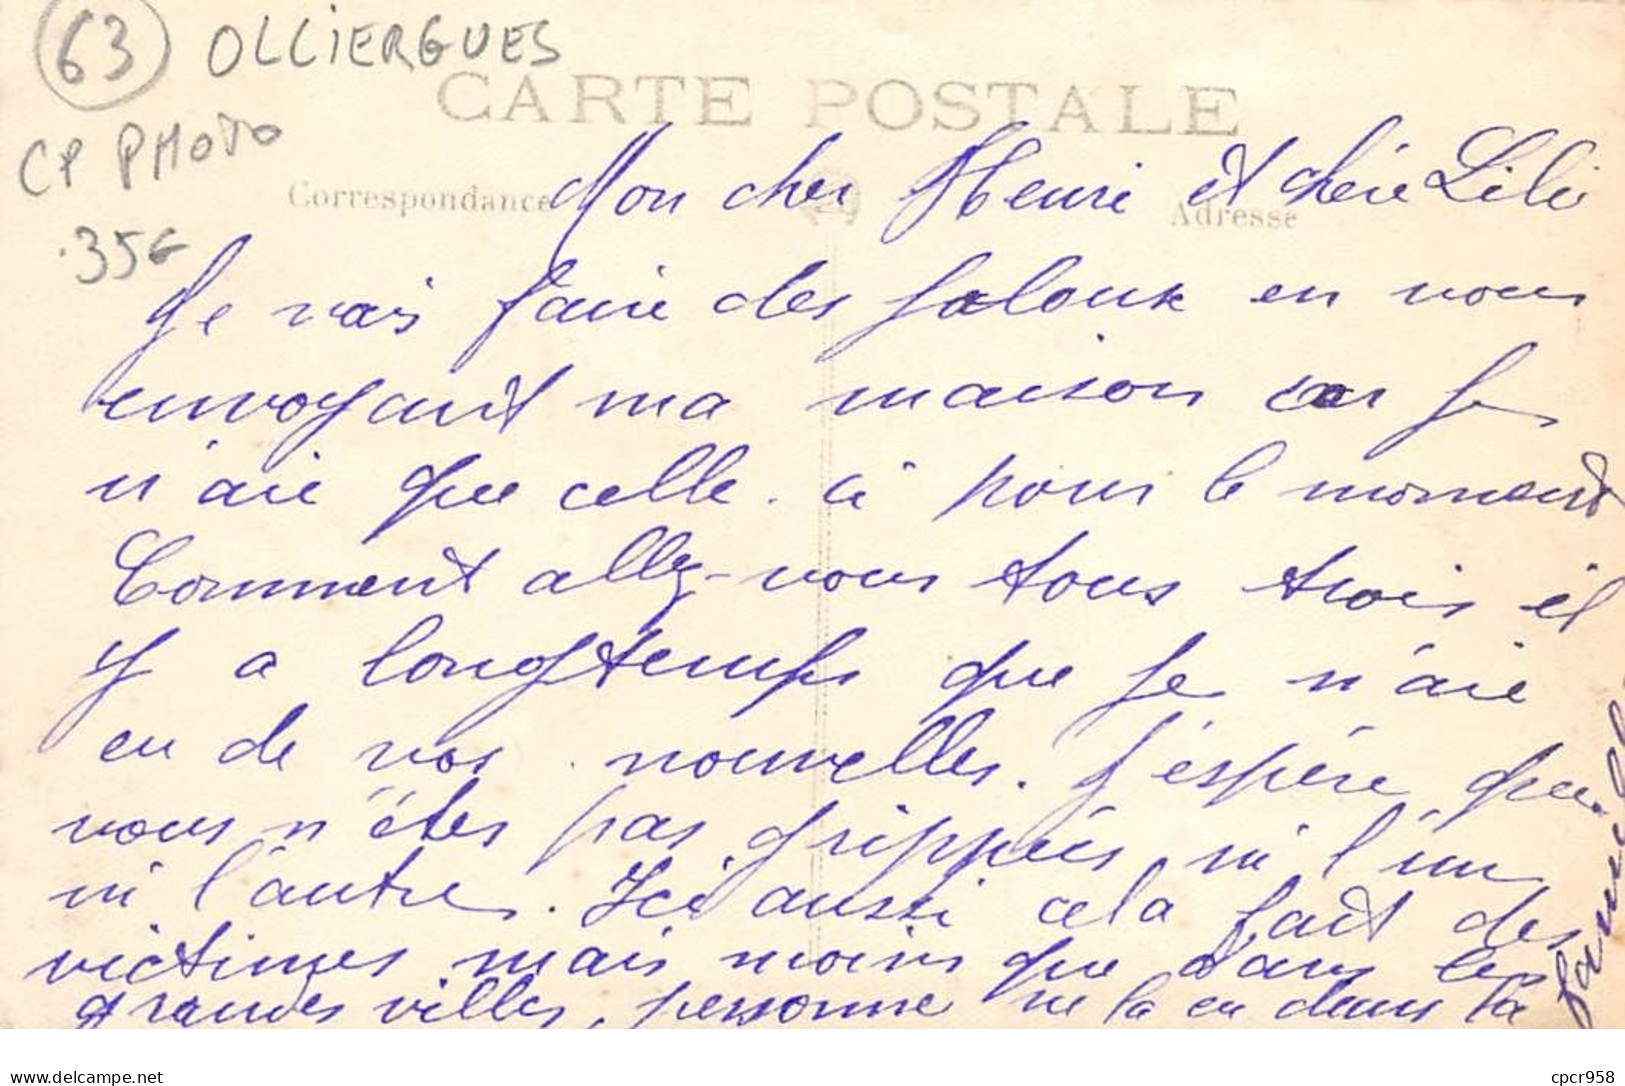 63 OLLIERGUES
CARTE POSTALE
CP PHOTO
Correspondance
Adresse
35€
Mon cher Henri et chérie Lili
Je vais faire des jaloux en vous
envoyant ma maison car je
n'aie que celle-ci pour le moment
Comment allez-vous tous trois il
y a longtemps que je n'aie
eu de vos nouvelles. J'espère que
vous n'êtes pas grippés, ni l'un
ni l'autre. Ici aussi cela fait des
victimes mais moins que dans les
grandes villes, personne ne l'a eu dans la
famille
delcampe.net
cpcr958